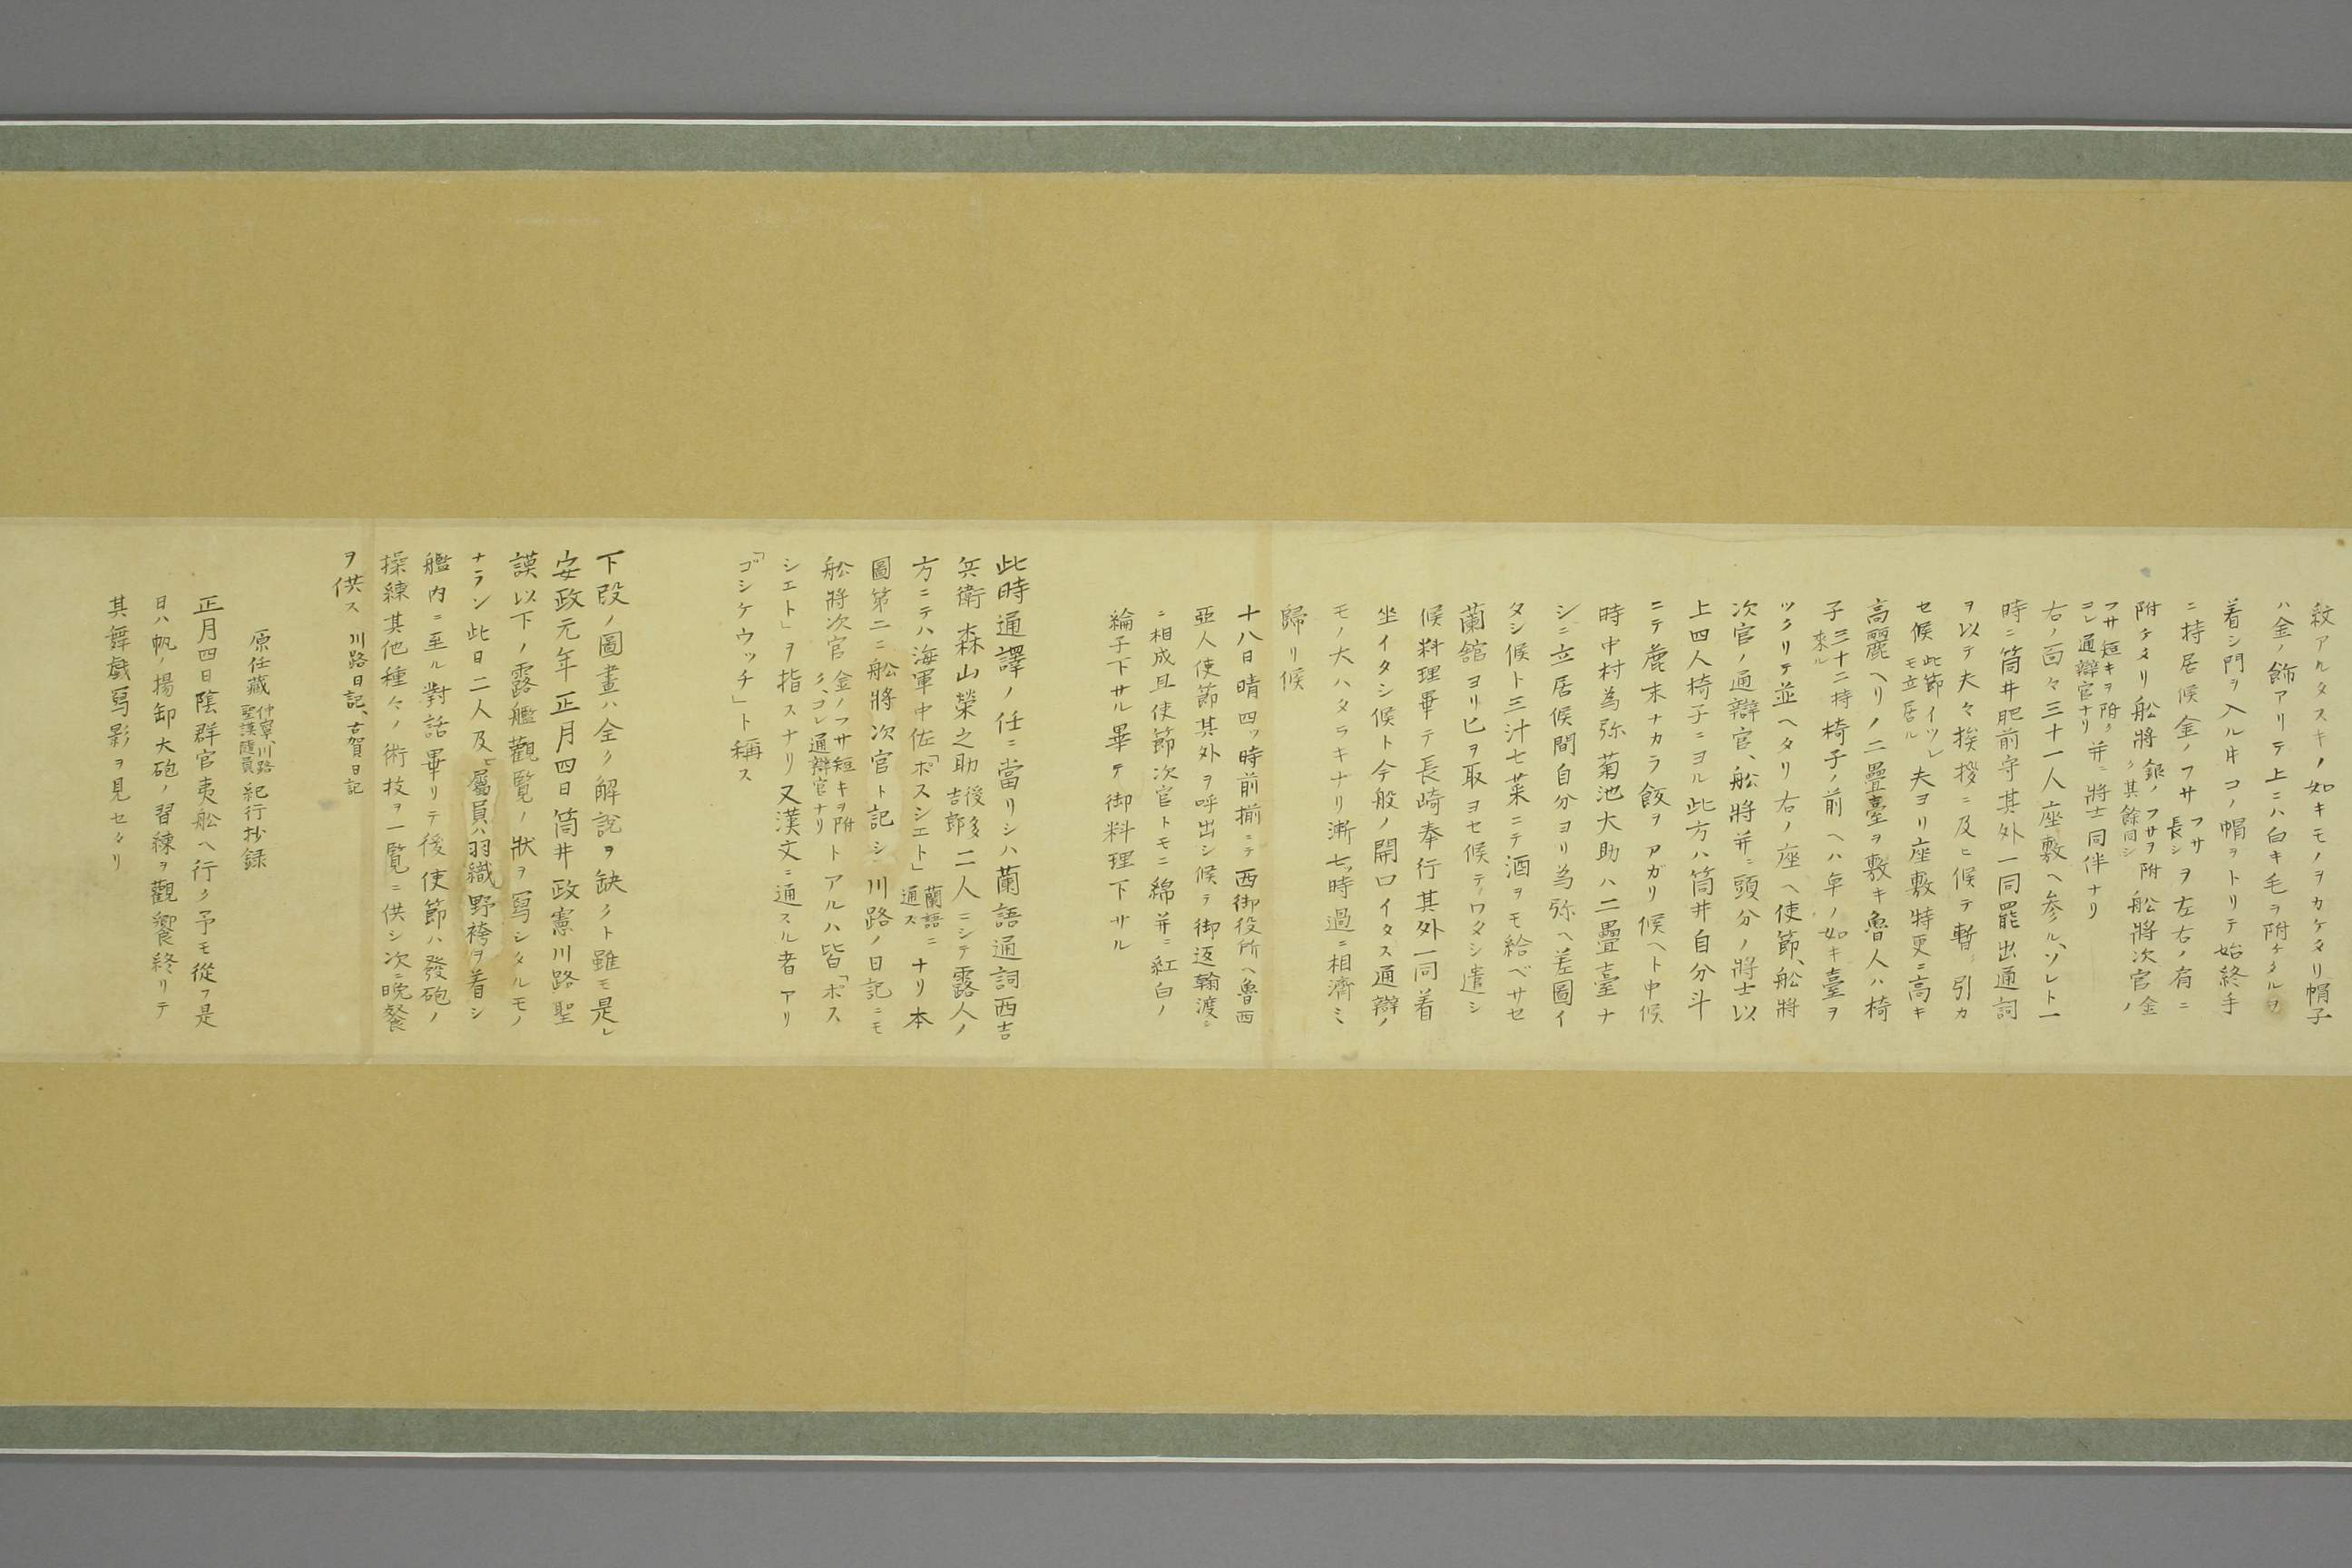 紋アルタスキノ如キモノヲカケタリ帽子
ハ金ノ飾アリテ上ニハ白キ毛ヲ附ケタルヲ
着シ門ヲ入ル井コノ帽ヲトリテ始終手
ニ持居候金ノフサ フサ長シ ヲ左右ノ肩ニ
附ケタリ船將 銀ノフサヲ附ク其餘同シ 船將次官 金ノ
フサ短キヲ附クコレ通辯官ナリ 并ニ將士同伴ナリ
右ノ面々三十一人座敷ヘ參ル、ソレト一
時ニ筒井肥前守其外一同罷出通詞
ヲ以テ夫々挨拶ニ及ヒ候テ暫ク引カ
セ候 此節イツレモ立居ル 夫ヨリ座敷特更ニ高キ
高麗ヘリノ二疊臺ヲ敷キ魯人ハ椅
子 三十二持來ル 椅子ノ前ヘハ卓ノ如キ臺ヲ
ツクリテ並ヘタリ右ノ座ヘ使節、船將
次官ノ通辯官、船將并ニ頭分ノ將士以
上四人椅子ニヨル此方ハ筒井自分斗
ニテ麁末ナカラ飯ヲアガリ候ヘト申候
時中村為弥菊池大助ハ二疊臺ナ
シニ立居候間自分ヨリ為弥ヘ差圖イ
タシ候ト三汁七菜ニテ酒ヲモ給ベサセ
蘭館ヨリ匕ヲ取ヨセ候テワタシ遣シ
候料理畢テ長崎奉行其外一同着
坐イタシ候ト今般ノ開口イタス通辯ノ
モノ大ハタラキナリ漸七ッ時過ニ相濟ミ
歸リ候
十八日晴四ッ時前揃ニテ西御役所ヘ魯西
亞人使節其外ヲ呼出シ候テ御返翰渡ニ
ニ相成且使節次官トモニ綿并ニ紅白ノ
綸子下サル畢テ御料理下サル
此時通譯ノ任ニ當リシハ蘭語通詞西吉
兵衛森山榮之助 後多吉郎 二人ニシテ露人ノ
方ニテハ海軍中佐「ポスシエト」 蘭語ニ通ス ナリ本
圖第二ニ船將次官ト記シ川路ノ日記ニモ
船將次官 金ノフサ短キヲ附ク、コレ通辯官ナリ トアルハ皆「ポス
シエト」ヲ指スナリ又漢文ニ通スル者アリ
「ゴシケウッチ」ト稱ス
下段ノ圖畫ハ全ク解說ヲ缺クト雖モ是レ
安政元年正月四日筒井政憲川路聖
謨以下ノ露艦觀覽ノ狀ヲ寫シタルモノ
ナラン此日二人及ヒ屬員ハ羽織野袴ヲ着シ
艦內ニ至ル對話畢リテ後使節ハ發砲ノ
操練其他種々ノ術技ヲ一覽ニ供シ次ニ晚餐
ヲ供ス 川路日記、古賀日記
原任藏 仲寧、川路聖謨隨員 紀行抄錄
正月四日陰群官夷舩ヘ行ク予モ從フ是
日ハ帆ノ揚卸大砲ノ習練ヲ觀饗終リテ
其舞戲寫影ヲ見セタリ